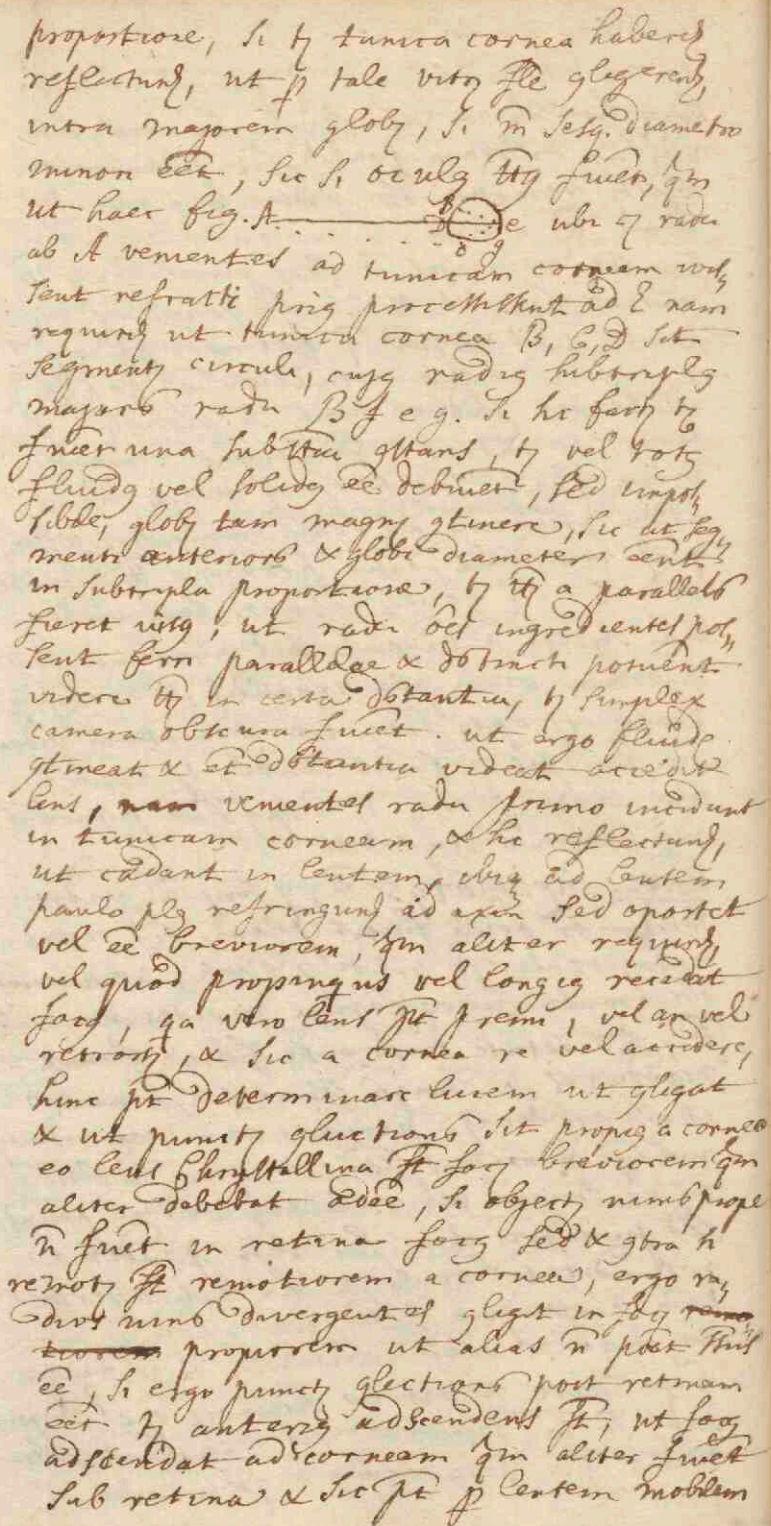 proportione, si tȝ tunica cornea haberetȝ
reflectunȝ, ut p̲ tale vitrȝ fle gligerenȝ,
intra majorem globȝ, si m̄ sesq. diametro
minori eēt, sic si oculg ttg fuiet, qm
ut haec fig. A B D e g ubi radii
ab A venientes ad tunicam corneam vo„
lent refracti prig processissent ad nam
requiritȝ ut tunica cornea B, C, D sit
segmentȝ circuli, cujg radig subtriplg
majoris radii B f e g. si hc factȝ
fuiet una subttia gstans, tȝ vel totg
fluidg vel solidg eē debuiet, sed impos„
sibile, globȝ tam magnȝ gtinere, sic ut seg„
menti anterioris & globi diameter eēnt
in subtripla proportione, tȝ ttȝ a parallelis
fieret visg, ut radii oēs ingredientes pos„
sent ferri parallelae & distincti potuient
videre ttȝ in certa distantia, tȝ simplex
camera obscura fuiet. ut ergo fluidg
gtineat & et distantia videat accedit
lens, venientes radii primo incidunt
in tunicam corneam, & hc reflectunȝ,
ut cadant in lentem, ibiqȝ ad lentem
paulo plg refringunȝ ad axin sed oportet
vel eē breviorem, qm aliter requiritȝ
vel quod propinquus vel longig recedat
focg, qa vero lens pt premi, vel an vel
retrorsȝ, & sic a cornea re vel accedere,
hinc pt determinare lucem ut gligat
& ut punctȝ gluctionis sit propig a cornea
eo lens Chrystallina ft focȝ breviorem qm
aliter debebat adeē, si objectȝ nimis prope
n̄ fuiet in retina focg sed & gtra h
remotȝ ft remotiorem a cornea, ergo ra„
dios nimis divergentes gligit in focȝ
propiorem ut alias n̄ poet
eē, si ergo punctȝ glectionis post retinam
eēt tȝ anterig adscendens ft, ut focg
adscendat ad corneam qm aliter fuiet
sub retina & sic pt p̲ lentem mobilem